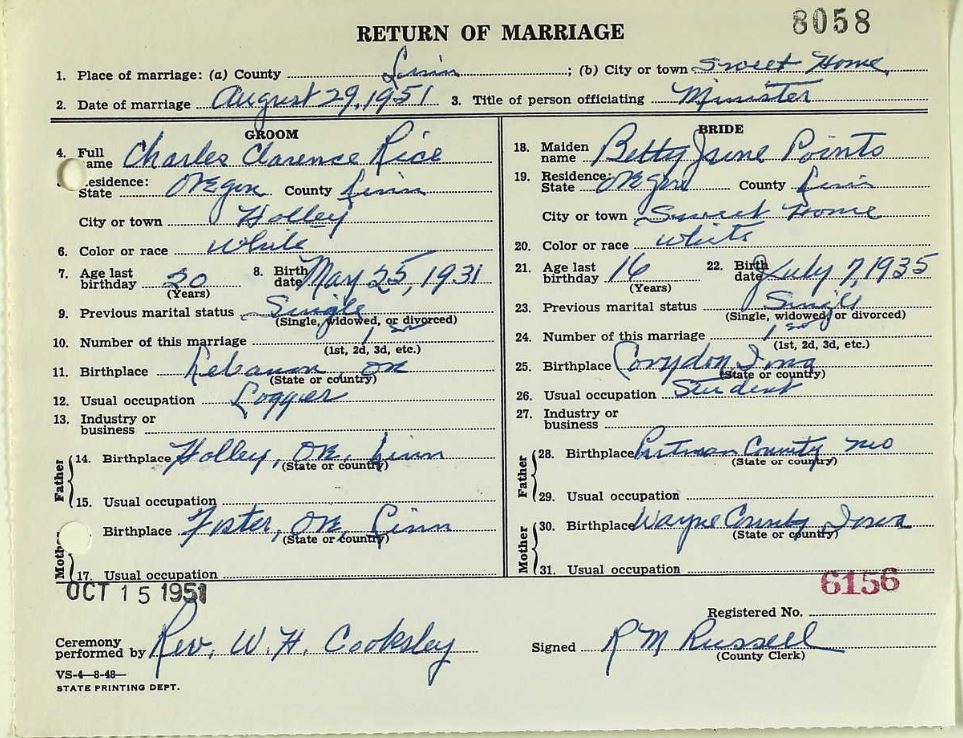 8058
RETURN OF MARRIAGE
1. Place of marriage: (a) County Linn ; (b) City or town Sweet Home
2. Date of marriage August 29, 1951 3. Title of person officiating Minister
GROOM
4. Full ame Charles Clarence Rice
esidence: State Oregon County Linn
City or town Holley
6. Color or race White
7. Age last birthday 20 (Years) 8. Birth date May 25, 1931
9. Previous marital status Single (Single, widowed, or divorced)
10. Number of this marriage 1 (1st, 2d, 3d, etc.)
11. Birthplace Lebanon Ore (State or country)
12. Usual occupation Logger
13. Industry or business
Father
14. Birthplace Holley, Ore, Linn (State or country)
15. Usual occupation
Moth
Birthplace Foster, Ore, Linn (State or country)
17. Usual occupation
BRIDE
18. Maiden name Betty June Points
19. Residence: State Oregon County Linn
City or town Sweet Home
20. Color or race White
21. Age last birthday 16 (Years) 22. Birth date July 7, 1935
23. Previous marital status Single (Single, widowed, or divorced)
24. Number of this marriage 1 (1st, 2d, 3d, etc.)
25. Birthplace Corydon Iowa (State or country)
26. Usual occupation Student
27. Industry or business
Father
28. Birthplace Putman County Mo (State or country)
29. Usual occupation
Mother
30. Birthplace Wayne County, Iowa (State or country)
31. Usual occupation
OCT 15 1951
6156
Registered No.
Ceremony performed by Rev. W. H. Cooksley
Signed R M Russell
(County Clerk)
VS-4—8-48—
STATE PRINTING DEPT.